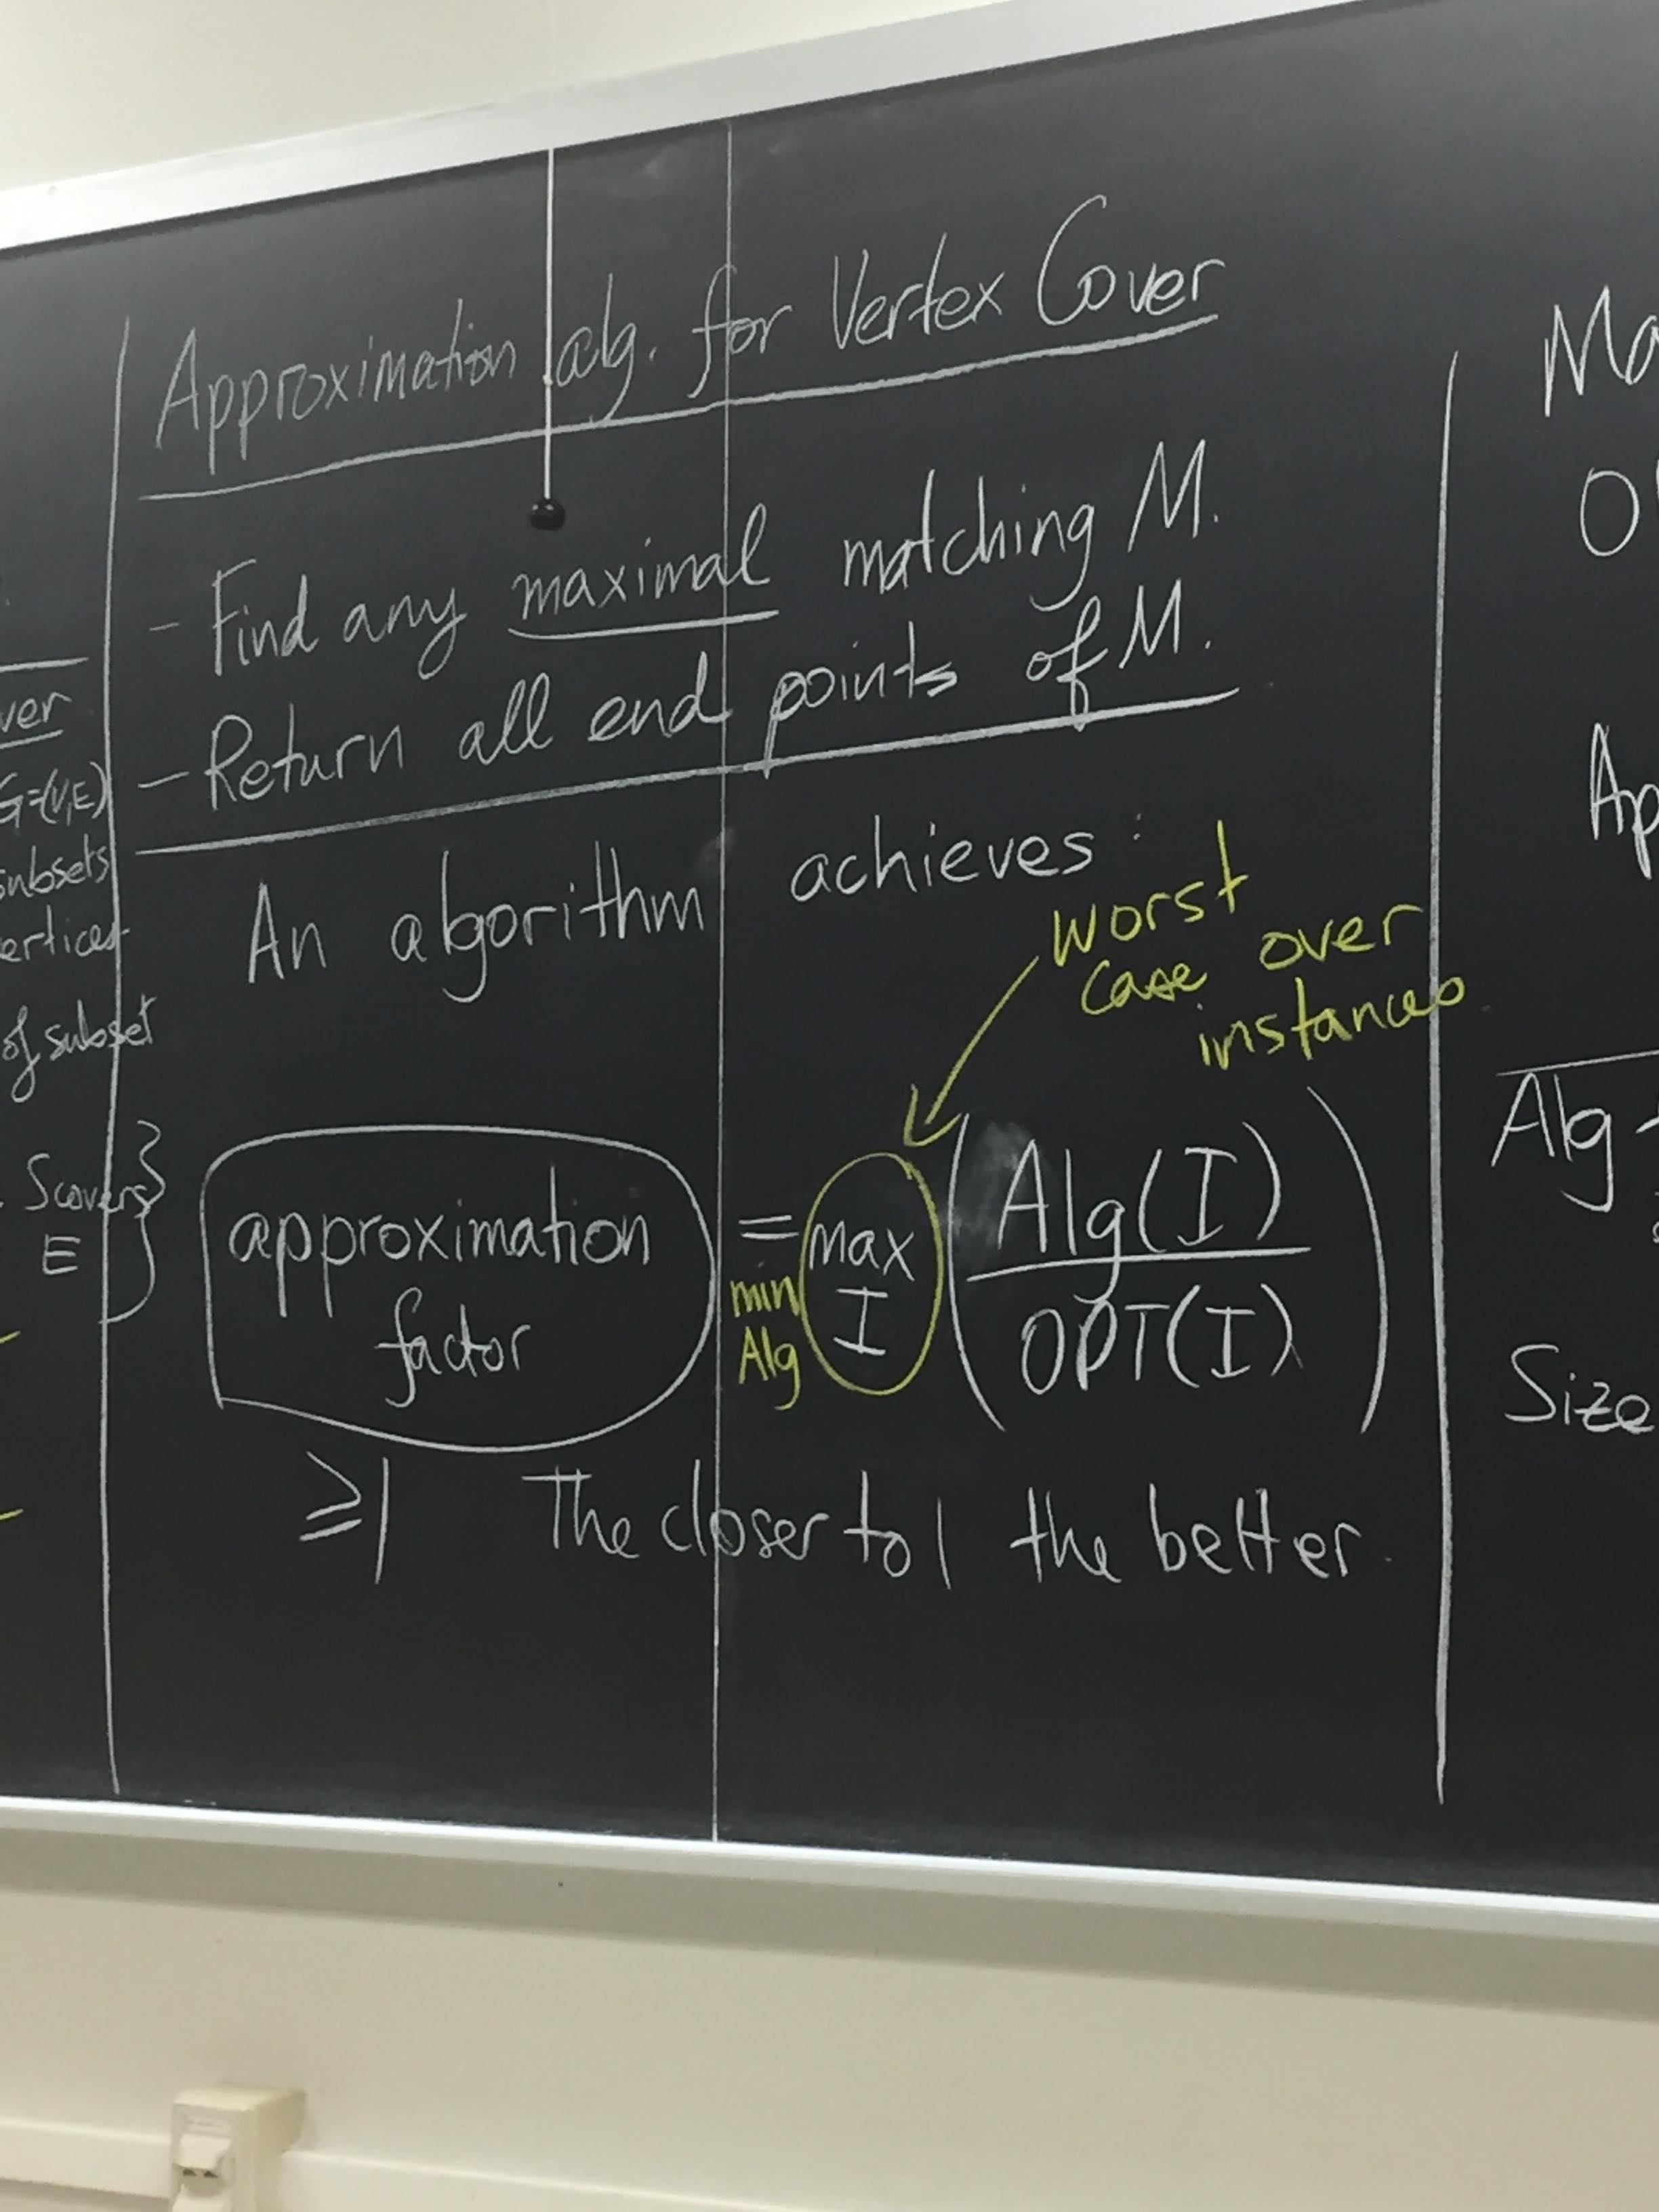 ver
G=(V,E)
subsets
of subset
S covers
E
Approximation alg. for Vertex Cover
- Find any maximal matching M.
- Return all end points of M.
An algorithm achieves:
worst
case over
instances
approximation
factor
= max
I
min
Alg
(Alg(I)
OPT(I))
≥1 The closer to 1 the better.
Ma
Ap
Alg
Size